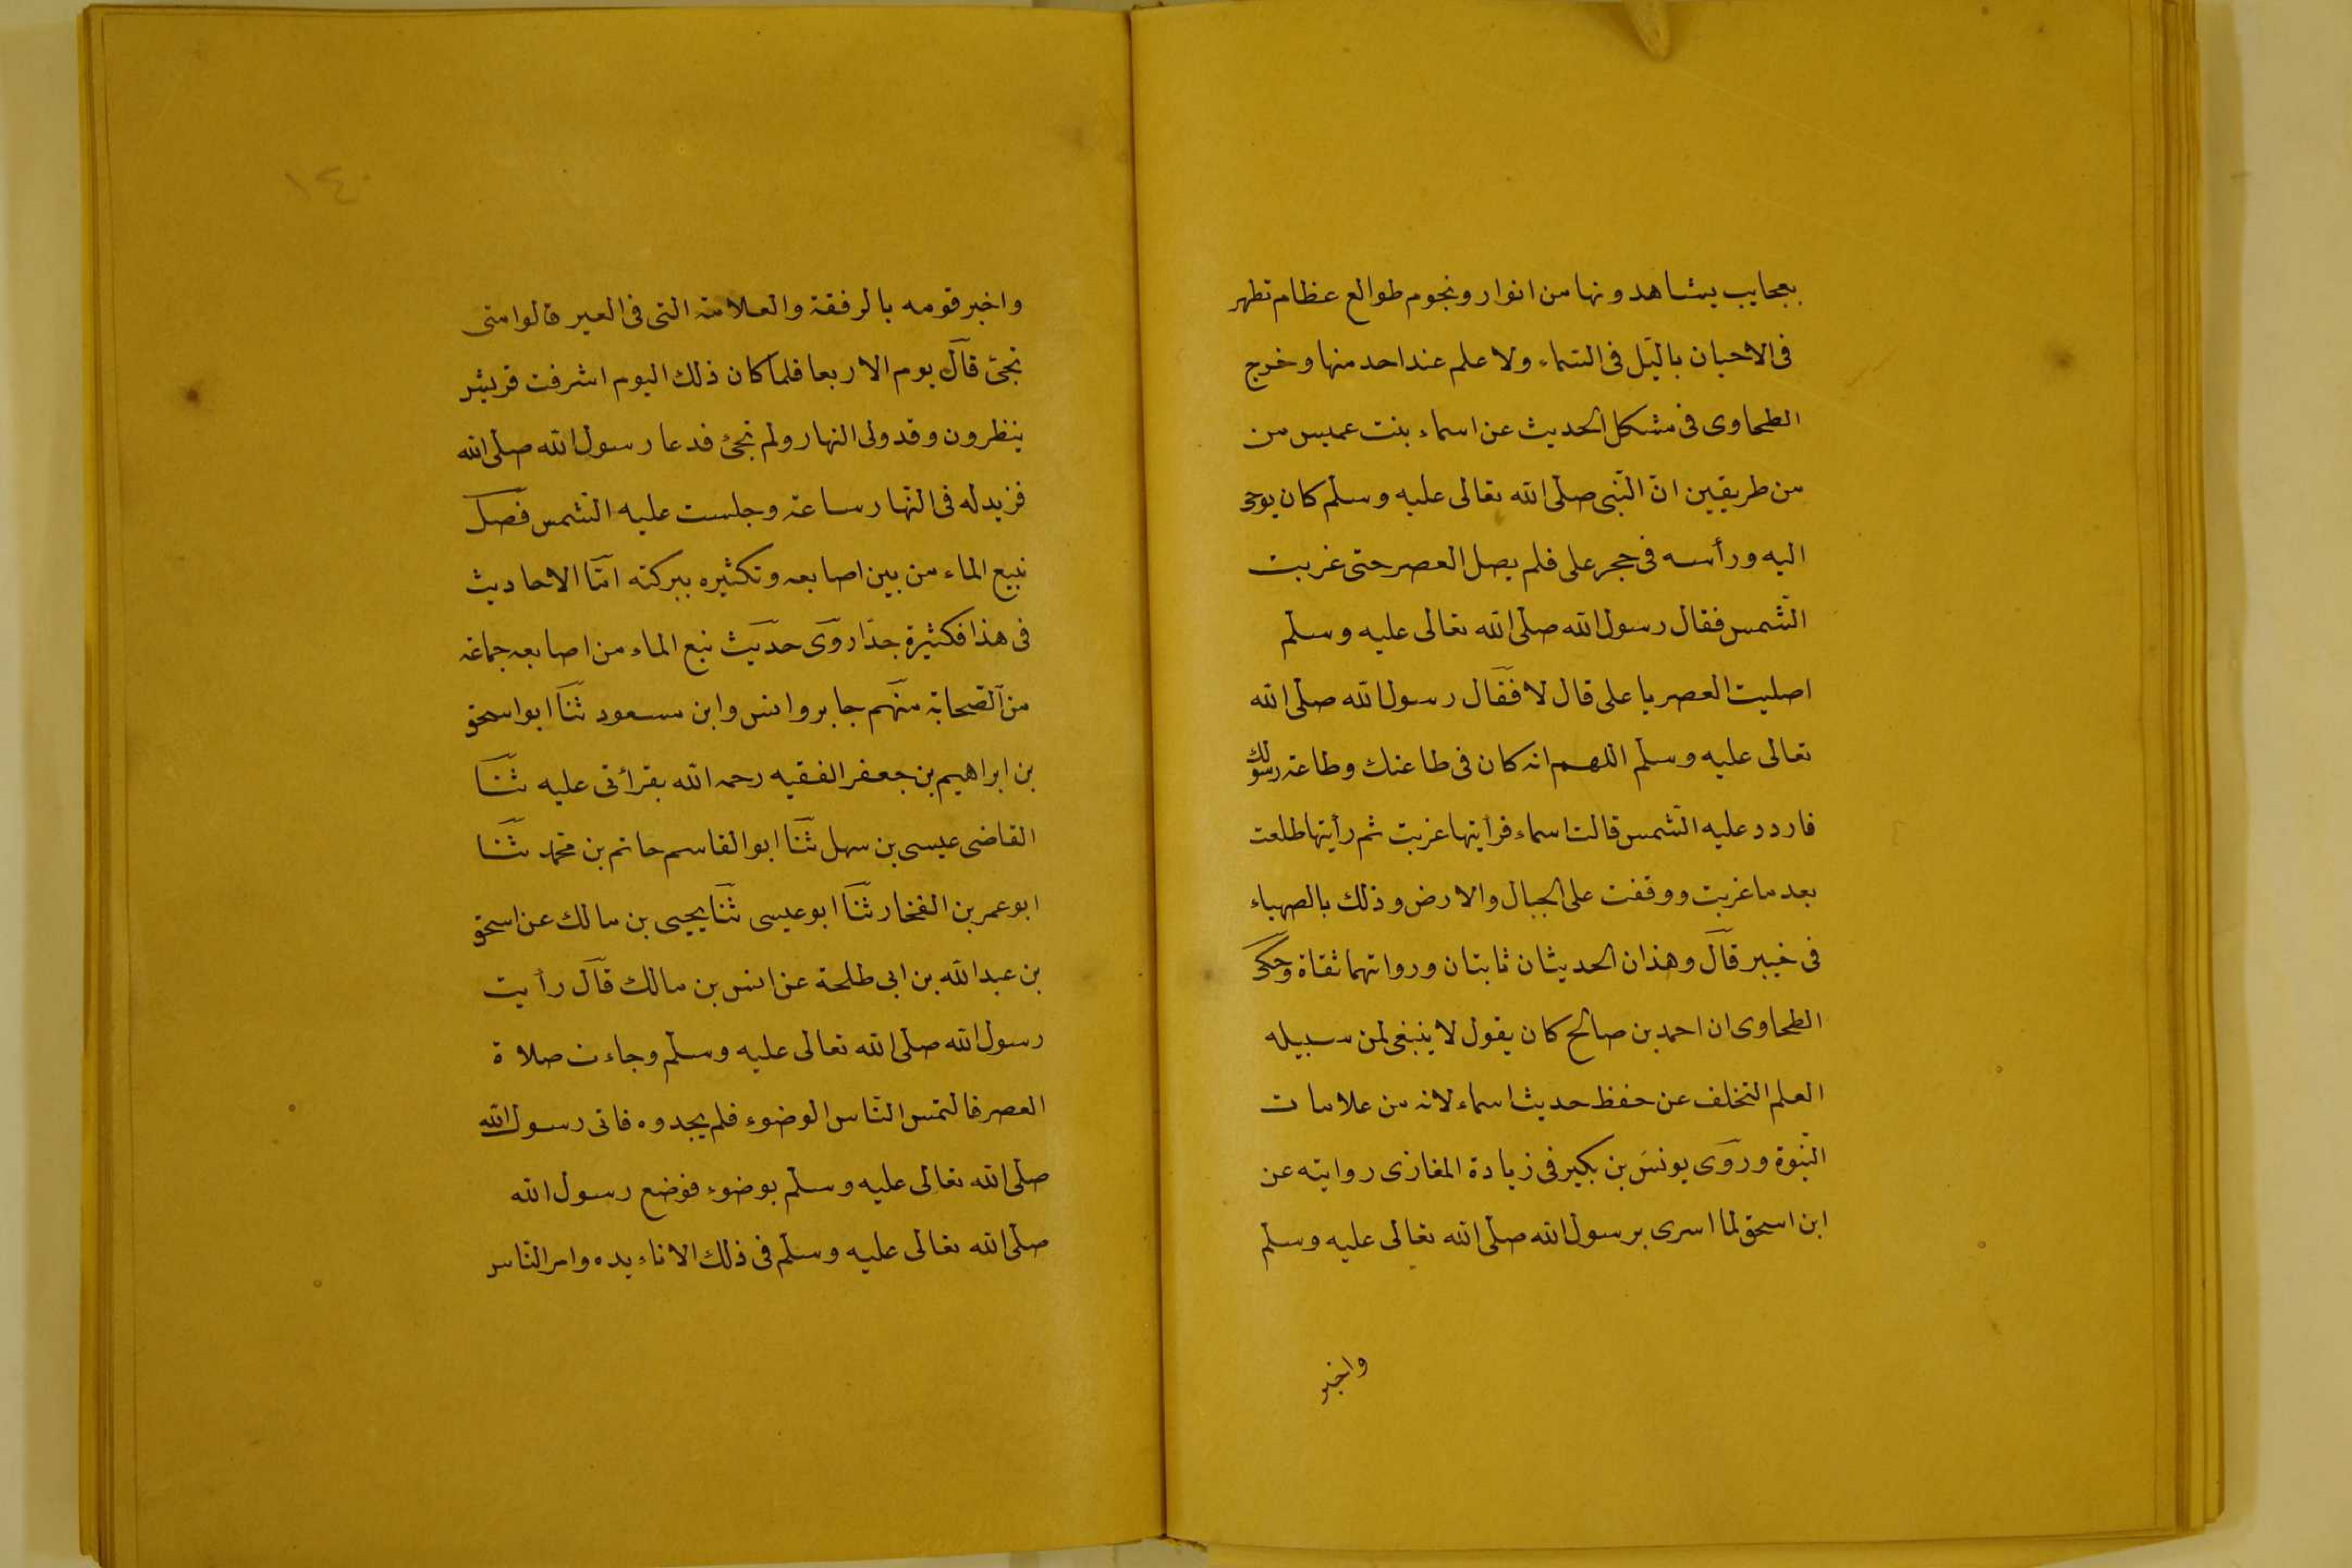 بعجايب يشاهدونها من انوار ونجوم طوالع عظام تظهر
فى الاحيان باليّل فى السّماء ولا علم عند احد منها وخرج
الطحاوى فى مشكل الحديث عن اسماء بنت عميس من
من طريقين انّ النّبى صلّى الله تعالى عليه وسلّم كان يوحى
اليه ورأسه فى حجر على فلم يصل العصر حتى غربت
الشّمس فقال رسول الله صلّى الله تعالى عليه وسلّم
اصليت العصر يا على قال لا فقال رسول الله صلّى الله
تعالى عليه وسلّم اللهم انه كان فى طاعتك وطاعة رسولك
فاردد عليه الشّمس قالت اسماء فرأيتها غربت ثم رأيتها طلعت
بعد ما غربت ووقفت على الجبال والارض وذلك بالصهباء
فى خيبر قال وهذان الحديثان ثابتان ورواتهما ثقاة وحكى
الطحاوى ان احمد بن صالح كان يقول لا ينبغى لمن سبيله
العلم التخلف عن حفظ حديث اسماء لانه من علامات
النّبوة وروى يونس بن بكير فى زيادة المغازى روايته عن
ابن اسحق لما اسرى برسول الله صلّى الله تعالى عليه وسلّم
واخبر
١٤٠
واخبر قومه بالرفقة والعلامة التى فى العير قالوا متى
تجئ قال يوم الاربعا فلما كان ذلك اليوم اشرفت قريش
ينظرون وقد ولى النهار ولم تجئ فدعا رسول الله صلّى الله
فزيد له فى النّهار ساعة وجلست عليه الشّمس فصل
نبيع الماء من بين اصابعه وتكثيره ببركته امّا الاحاديث
فى هذا فكثيرة جدّا روى حديث نبع الماء من اصابعه جماعة
من الصّحابة منهم جابر وانس وابن مسعود ثنا ابو اسحق
بن ابراهيم بن جعفر الفقيه رحمه الله بقرأتى عليه ثنا
القاضى عيسى بن سهل ثنا ابو القاسم حاتم بن محمّد ثنا
ابو عمر بن الفخار ثنا ابو عيسى ثنا يحيى بن مالك عن اسحق
بن عبد الله بن ابى طلحة عن انس بن مالك قال رأيت
رسول الله صلّى الله تعالى عليه وسلّم وجاءت صلاة
العصر فالتمس النّاس الوضوء فلم يجدوه فاتى رسول الله
صلّى الله تعالى عليه وسلّم بوضوء فوضع رسول الله
صلّى الله تعالى عليه وسلّم فى ذلك الاناء يده وامر النّاس